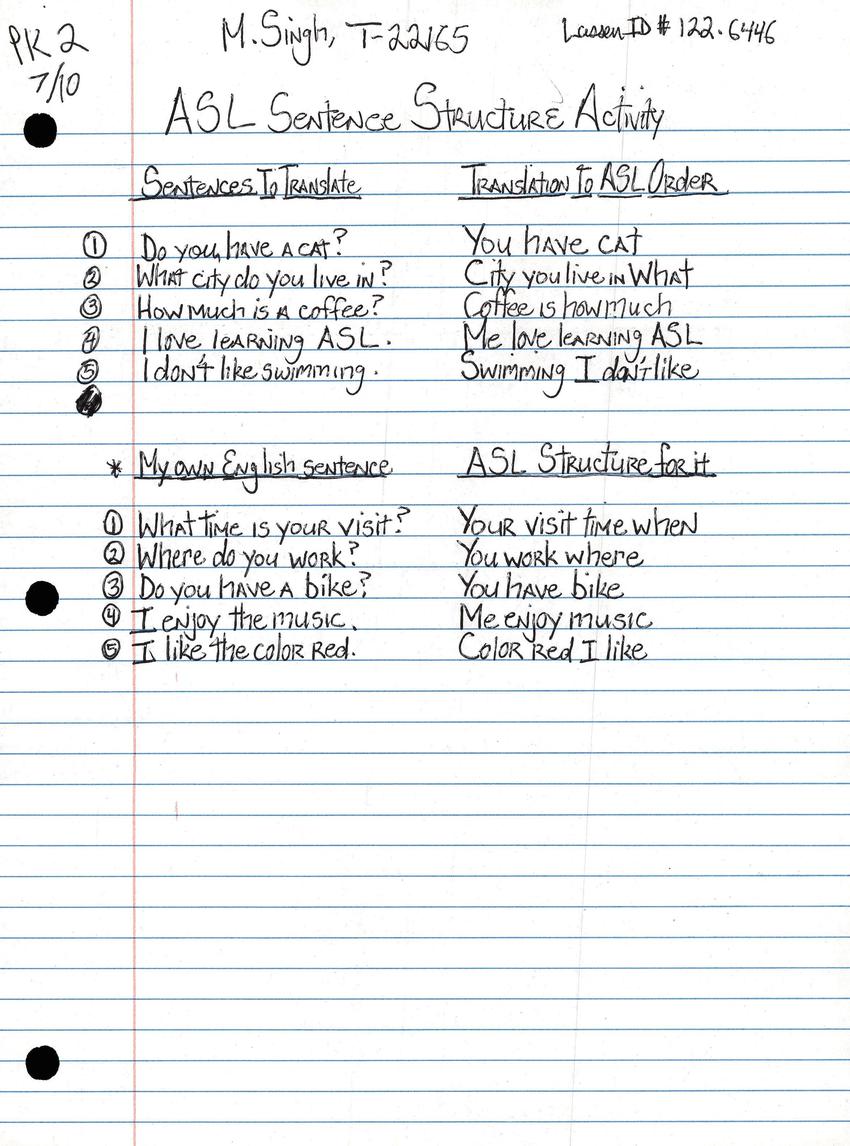 PK 2
7/10
M. Singh, T-22165
Lassen ID # 122.6446
ASL Sentence Structure Activity
Sentences To Translate Translation to ASL Order
① Do you have a cat? You have cat
② What city do you live in? City you live in What
③ How much is a coffee? Coffee is how much
④ I love learning ASL. Me love learning ASL
⑤ I don't like swimming. Swimming I don't like
* My own English sentence ASL Structure for it
① What time is your visit? Your visit time when
② Where do you work? You work where
③ Do you have a bike? You have bike
④ I enjoy the music. Me enjoy music
⑤ I like the color red. Color Red I like